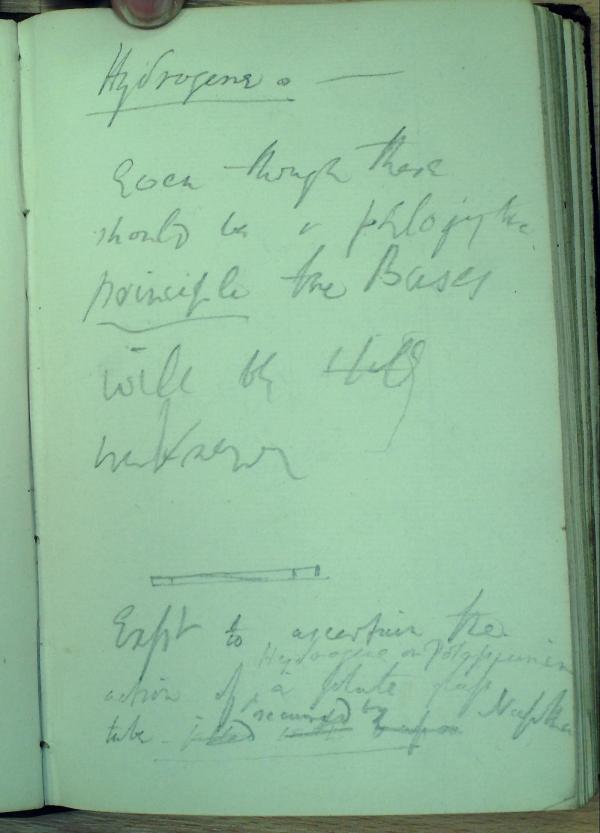 Hydrogene. —
Even though there
should be a phlogistic
principle the Bases
will be still
unknown
Expt to ascertain the
Hydrogene on Potassium in
action of a plate glass
tube filled secured by Naptha